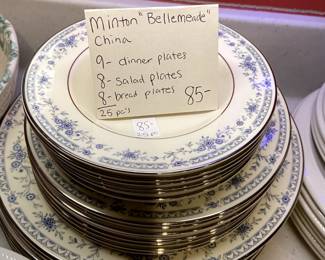 Minton "Bellemeade"
China
9- dinner plates
8- salad plates
8- bread plates 85-
25 pc's
85-